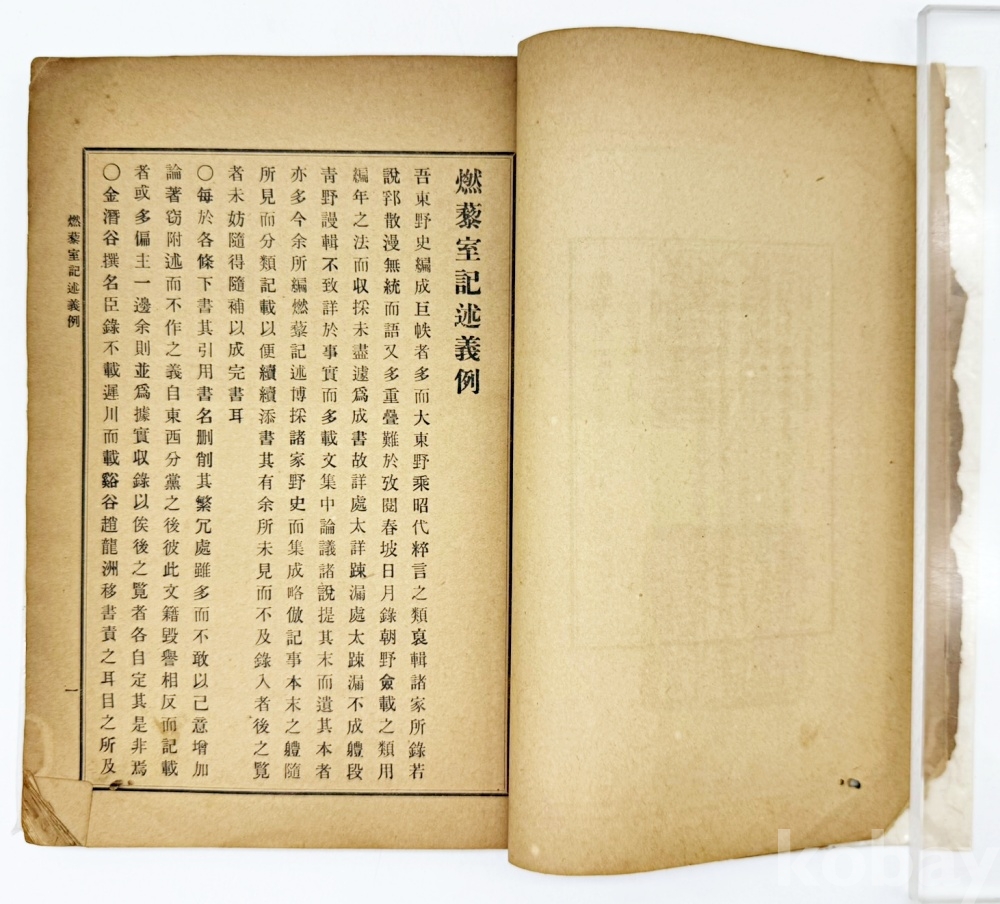 燃藜室記述義例
吾東野史編成巨帙者多而大東野乘昭代粹言之類裒輯諸家所錄若
說郛散漫無統而語又多重疊難於攷閱春坡日月錄朝野僉載之類用
編年之法而収採未盡遽爲成書故詳處太詳踈漏處太踈漏不成軆段
靑野謾輯不致詳於事實而多載文集中論議諸說提其末而遺其本者
亦多今余所編燃藜記述博採諸家野史而集成略倣記事本末之軆隨
所見而分類記載以便續續添書其有余所未見而不及錄入者後之覽
者未妨隨得隨補以成完書耳
〇每於各條下書其引用書名刪削其繁冗處雖多而不敢以己意增加
論著窃附述而不作之義自東西分黨之後彼此文籍毀譽相反而記載
者或多偏主一邊余則並爲據實収錄以俟後之覽者各自定其是非焉
〇金潛谷撰名臣錄不載遲川而載谿谷趙龍洲移書責之耳目之所及
燃藜室記述義例
一
kobay